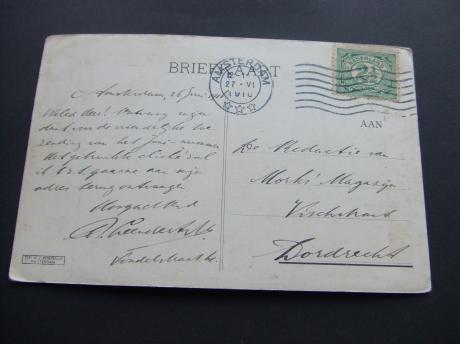 BRIEFKAART
AMSTERDAM
27 · VI
1910
2½
AAN
Amsterdam, 26 Juni
WelEd. Heer! Ontvang mijn
dank voor de vriendelijke
zending van het Juni-nummer
Het gebruikte cliché zal
ik t.z.t. gaarne aan mijn
adres terug ontvangen
Hoogachtend
Vondelstraat
De Redactie van
Morks' Magazijn
Vischstraat
Dordrecht